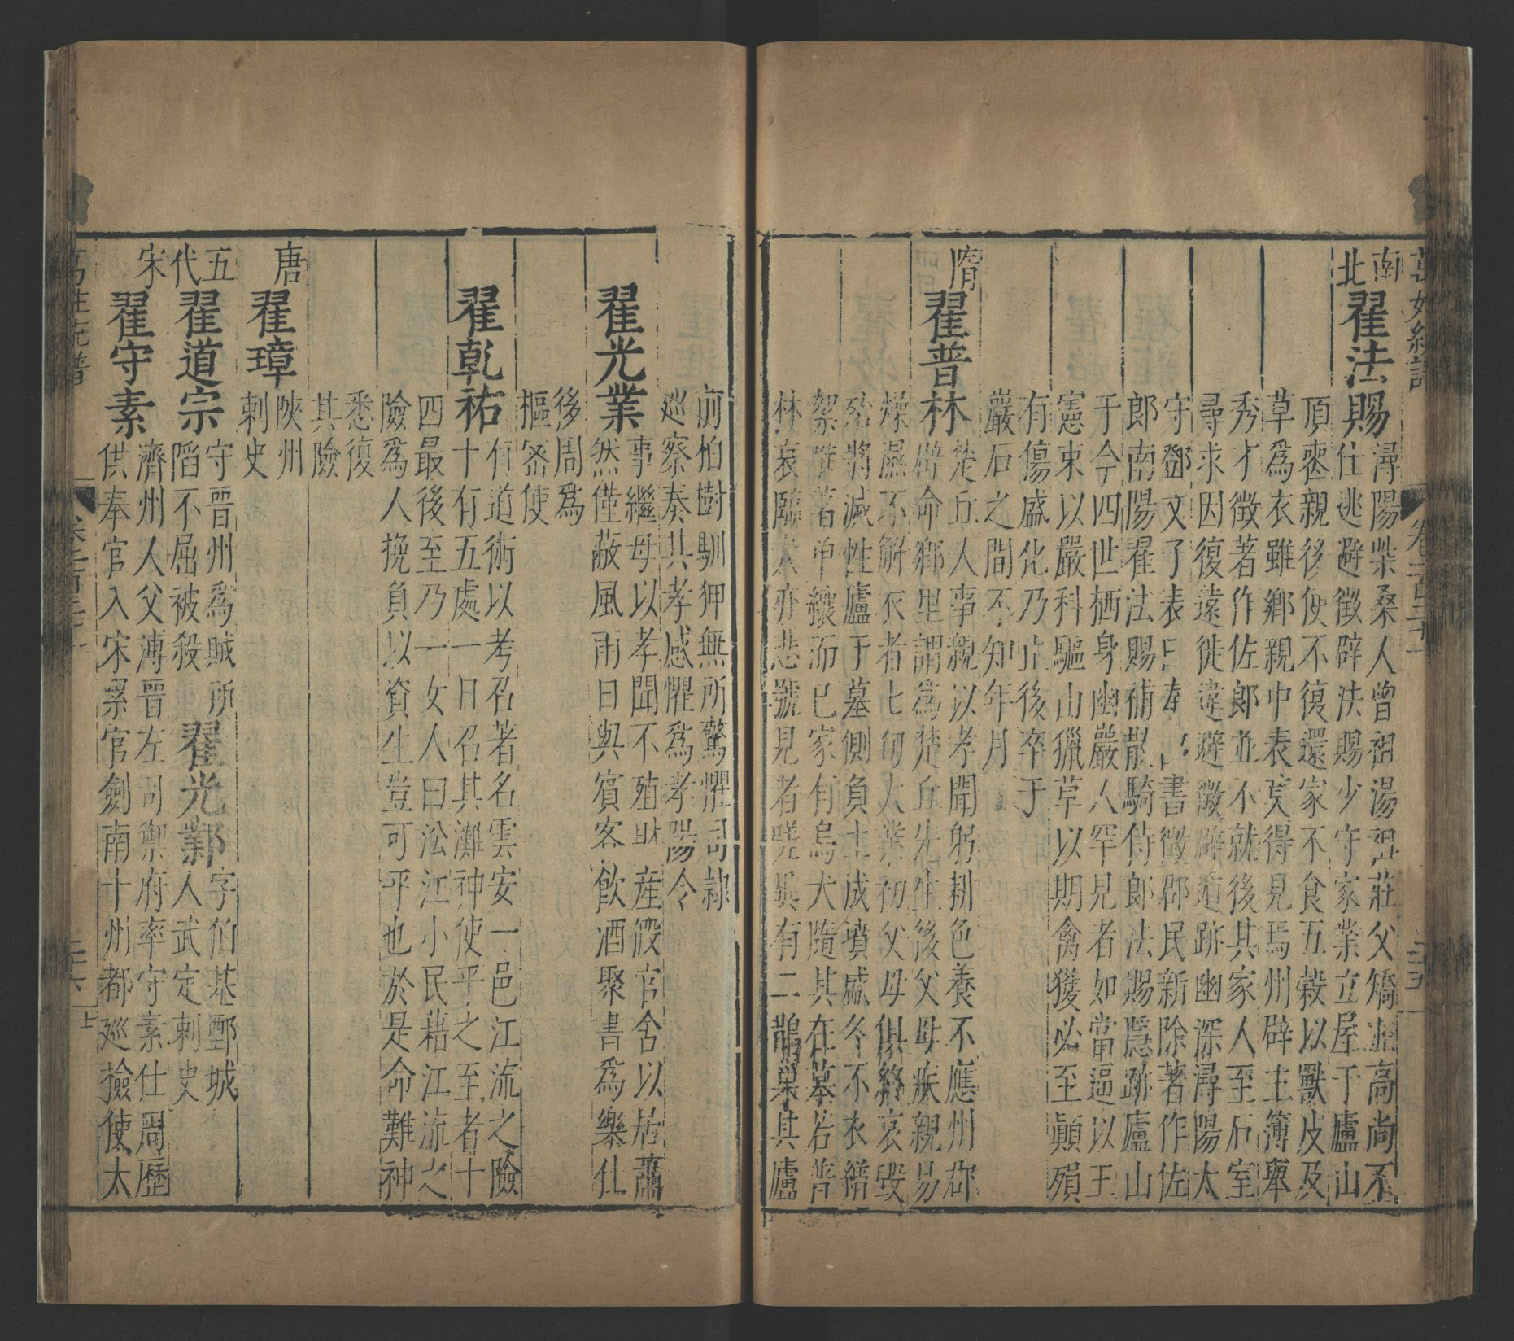 南北
翟法賜
潯陽柴桑人曾祖湯祖莊父矯並高尚不
仕逃避徵辟法賜少守家業立屋于廬山
頂喪親後便不復還家不食五穀以獸皮及
草為衣雖鄉親中表莫得見焉州辟主簿舉
秀才徵著作佐郎並不就後其家人至石室
尋求因復遠徙違避徵辟遁跡幽深潯陽太
守鄧文子表曰奉 書徵郡民新除著作佐
郎南陽翟法賜補散騎侍郎法賜隱跡廬山
于今四世栖身幽巖人罕見者如當逼以王
憲束以嚴科驅山獵草以期禽獲必至顛殞
有傷盛化乃止後卒于
巖石之間不知年月
隋
翟普林
楚丘人事親以孝聞躬耕色養不應州郡
辟命鄉里謂為楚丘先生後父母疾親易
燥濕不解衣者七旬大業初父母俱終哀毀
殆將滅性廬于墓側負土成墳盛冬不衣繒
絮唯著單縗而已家有烏犬隨其在墓若普
林哀臨犬亦悲號見者嗟異有二鵲巢其廬
前柏樹馴狎無所驚懼司隷
巡察奏其孝感擢為孝陽令
翟光業
事繼母以孝聞不殖財產假官舍以居蕭
然僅蔽風雨日與賓客飲酒聚書為樂仕
後周為
樞密使
翟乾祐
有道術以考召著名雲安一邑江流之險
十有五處一日召其灘神使平之至者十
四最後至乃一女人曰沿江小民藉江流之
險為人挽負以資生豈可平也於是命難神
悉復
其險
唐
翟璋
陝州
刺史
五代
翟道宗
守晋州為賊所
陷不屈被殺
翟光鄴
字伯基鄄城
人武定刺史
宋
翟守素
濟州人父溥晋左司禦府率守素仕周歷
供奉官入宋累官劍南十州都巡撿使太